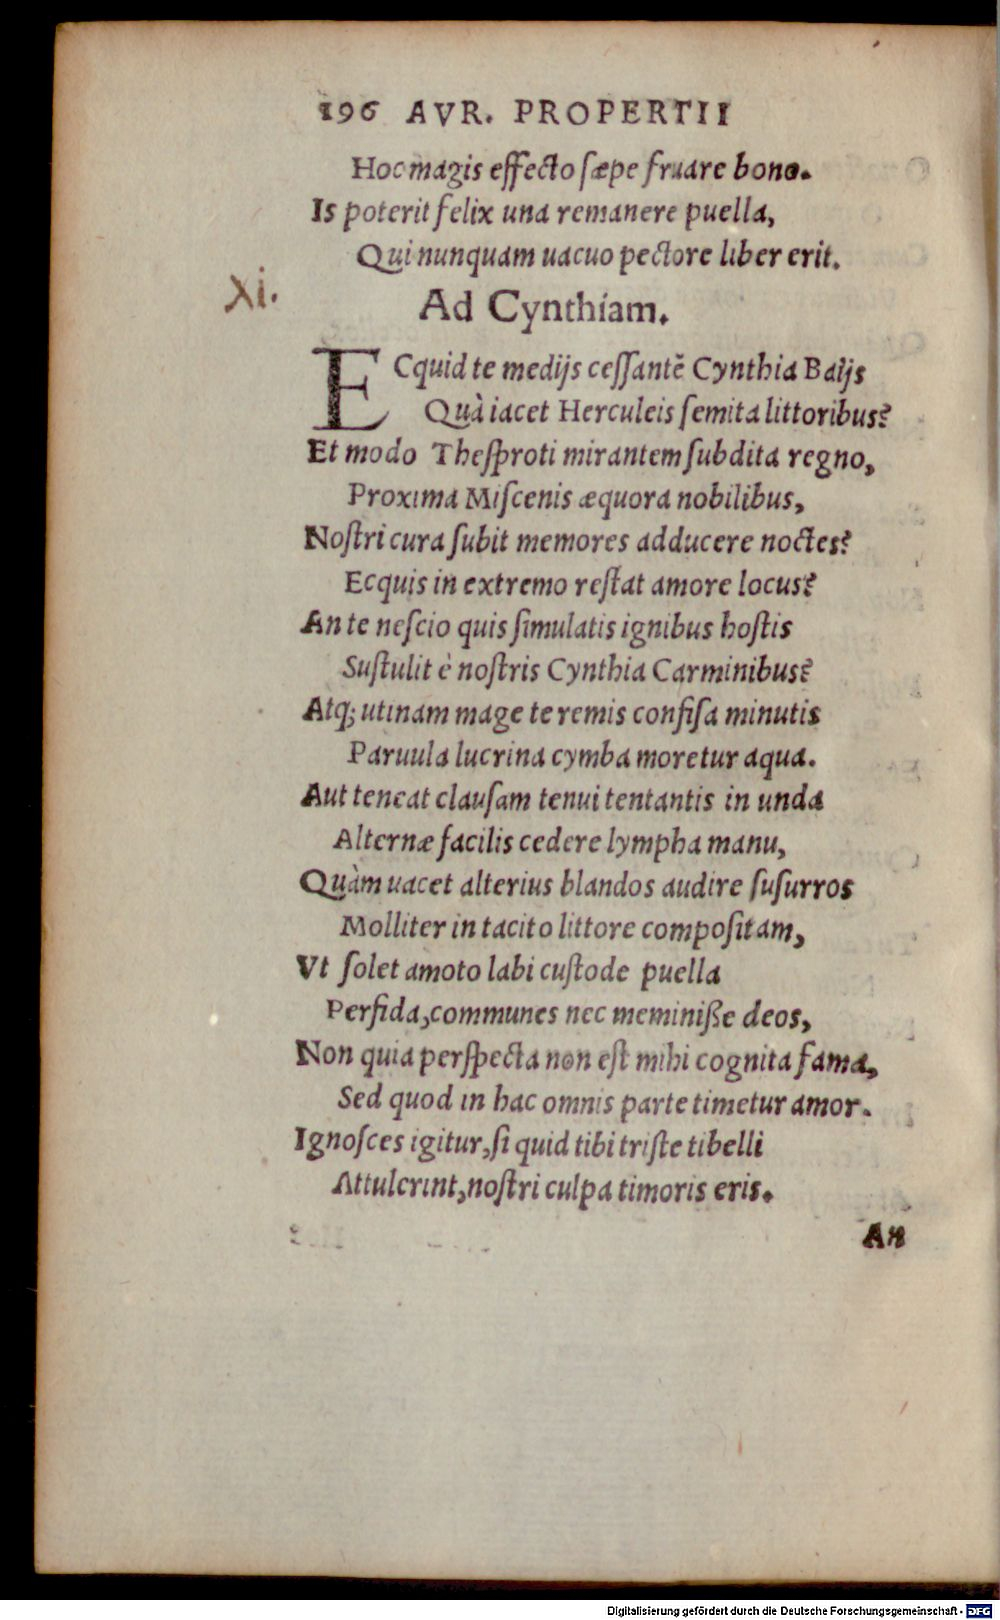 196 AVR. PROPERTII
Hoc magis effecto sæpe fruare bono.
Is poterit felix una remanere puella,
Qui nunquam uacuo pectore liber erit.
Xi.
Ad Cynthiam.
ECquid te medijs cessantē Cynthia Baijs
Quà iacet Herculeis semita littoribus?
Et modo Thesproti mirantem subdita regno,
Proxima Miscenis æquora nobilibus,
Nostri cura subit memores adducere noctes?
Ecquis in extremo restat amore locus?
An te nescio quis simulatis ignibus hostis
Sustulit è nostris Cynthia Carminibus?
Atq; utinam mage te remis confisa minutis
Paruula lucrina cymba moretur aqua.
Aut teneat clausam tenui tentantis in unda
Alternæ facilis cedere lympha manu,
Quàm uacet alterius blandos audire susurros
Molliter in tacito littore compositam,
Vt solet amoto labi custode puella
Perfida, communes nec meminiße deos,
Non quia perspecta non est mihi cognita fama,
Sed quod in hac omnis parte timetur amor.
Ignosces igitur, si quid tibi triste tibelli
Attulerint, nostri culpa timoris eris.
An
Digitalisierung gefördert durch die Deutsche Forschungsgemeinschaft - DFG